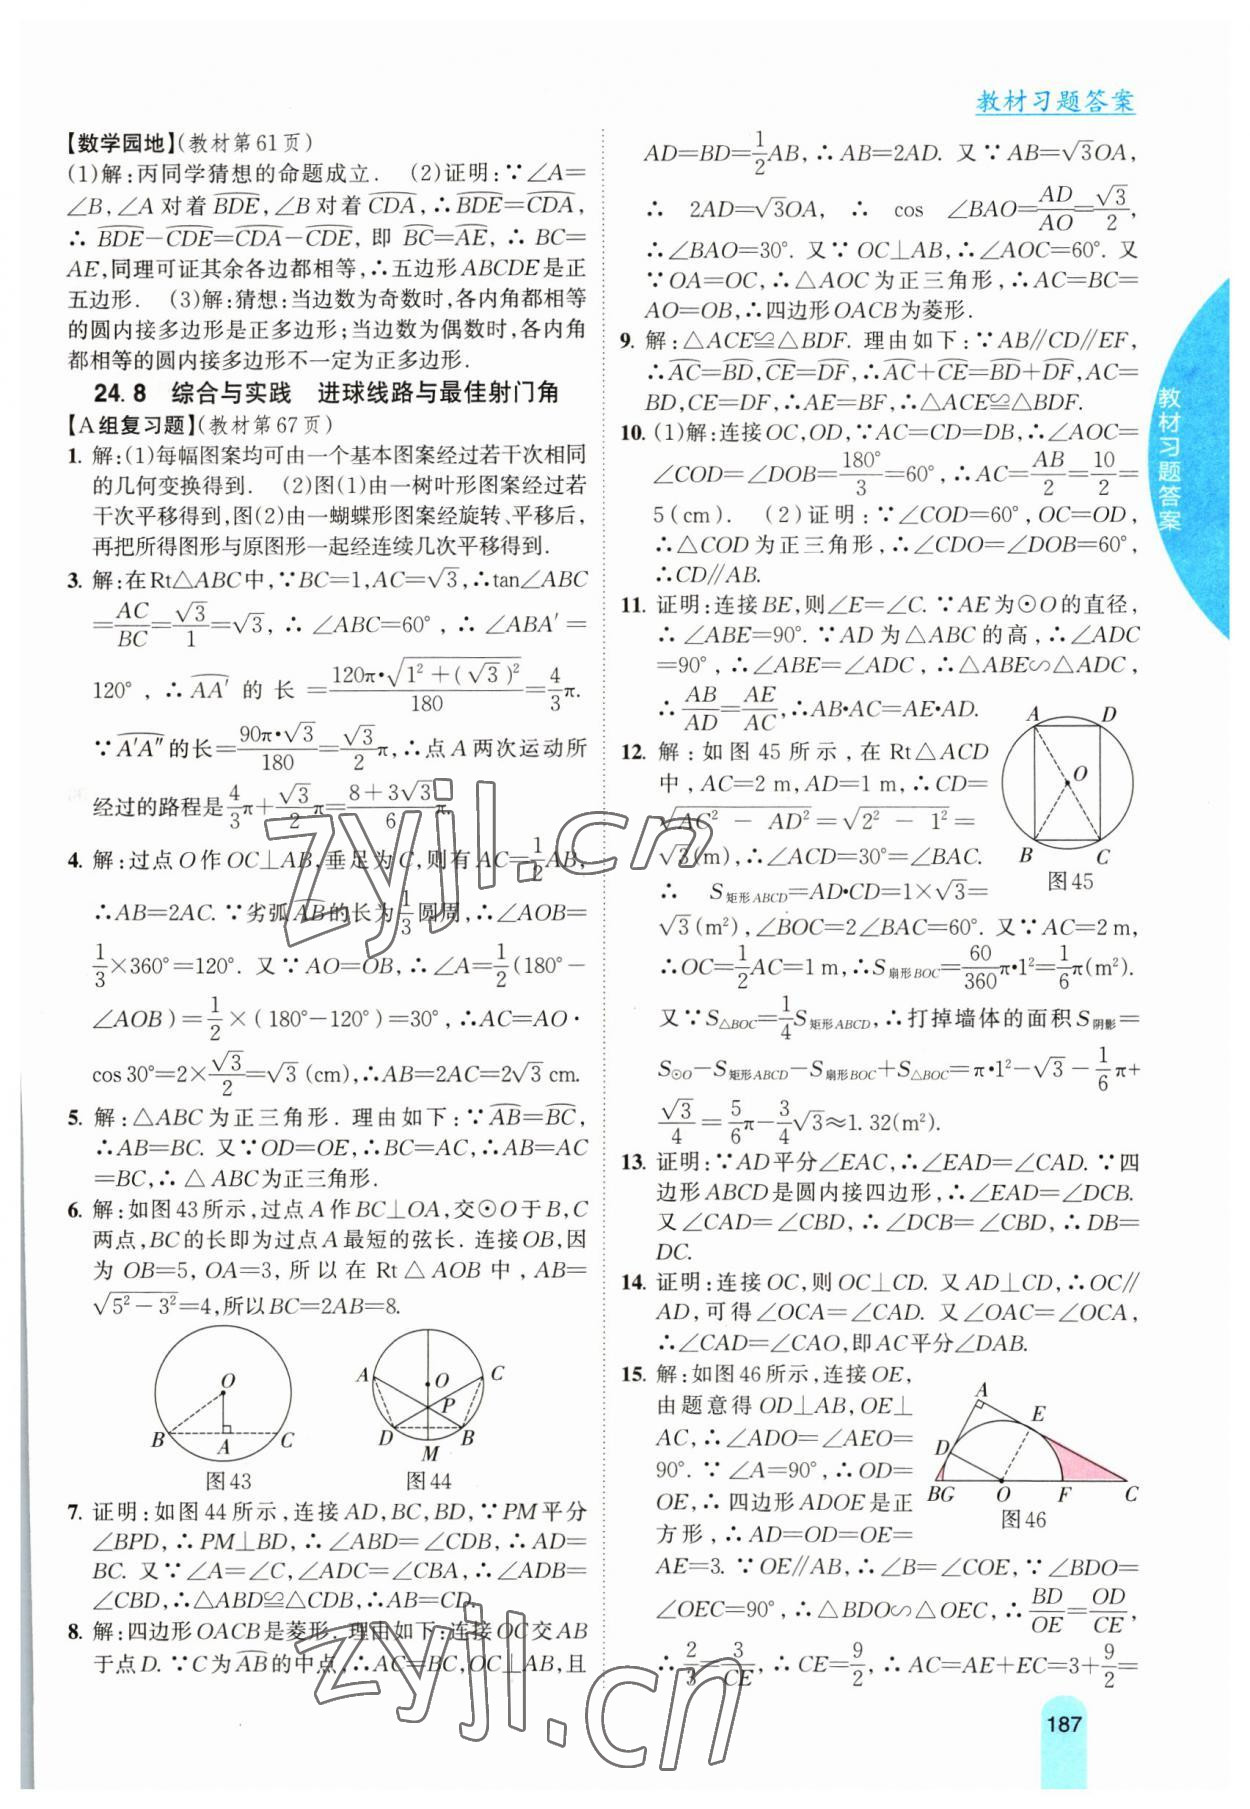 教材习题答案
【数学园地】(教材第61页)
(1)解:丙同学猜想的命题成立. (2)证明:∵∠A=
∠B,∠A对着⌒BDE,∠B对着⌒CDA,∴⌒BDE=⌒CDA,
∴⌒BDE−⌒CDE=⌒CDA−⌒CDE,即⌒BC=⌒AE,∴BC=
AE,同理可证其余各边都相等,∴五边形ABCDE是正
五边形. (3)解:猜想:当边数为奇数时,各内角都相等
的圆内接多边形是正多边形;当边数为偶数时,各内角
都相等的圆内接多边形不一定为正多边形.
24.8 综合与实践 进球线路与最佳射门角
【A组复习题】(教材第67页)
1. 解:(1)每幅图案均可由一个基本图案经过若干次相同
的几何变换得到. (2)图(1)由一树叶形图案经过若
干次平移得到,图(2)由一蝴蝶形图案经旋转、平移后,
再把所得图形与原图形一起经连续几次平移得到.
3. 解:在Rt△ABC中,∵BC=1,AC=√3,∴tan∠ABC
=AC/BC=√3/1=√3,∴∠ABC=60°,∴∠ABA′=
120°,∴⌒AA′的长=120π·√(1²+(√3)²)/180=4/3π.
∵⌒A′A″的长=90π·√3/180=√3/2π,∴点A两次运动所
经过的路程是4/3π+√3/2π=(8+3√3)/6π.
4. 解:过点O作OC⊥AB,垂足为C,则有AC=1/2AB,
∴AB=2AC. ∵劣弧⌒AB的长为1/3圆周,∴∠AOB=
1/3×360°=120°. 又∵AO=OB,∴∠A=1/2(180°−
∠AOB)=1/2×(180°−120°)=30°,∴AC=AO·
cos30°=2×√3/2=√3(cm),∴AB=2AC=2√3 cm.
5. 解:△ABC为正三角形. 理由如下:∵⌒AB=⌒BC,
∴AB=BC. 又∵OD=OE,∴BC=AC,∴AB=AC
=BC,∴△ABC为正三角形.
6. 解:如图43所示,过点A作BC⊥OA,交⊙O于B,C
两点,BC的长即为过点A最短的弦长. 连接OB,因
为OB=5,OA=3,所以在Rt△AOB中,AB=
√(5²−3²)=4,所以BC=2AB=8.
O
B A C
图43
A C
O
P
D M B
图44
7. 证明:如图44所示,连接AD,BC,BD,∵PM平分
∠BPD,∴PM⊥BD,∴∠ABD=∠CDB,∴AD=
BC. 又∵∠A=∠C,∠ADC=∠CBA,∴∠ADB=
∠CBD,∴△ABD≌△CDB,∴AB=CD.
8. 解:四边形OACB是菱形. 理由如下:连接OC交AB
于点D. ∵C为⌒AB的中点,∴AC=BC,OC⊥AB,且
AD=BD=1/2AB,∴AB=2AD. 又∵AB=√3OA,
∴2AD=√3OA,∴cos∠BAO=AD/AO=√3/2,
∴∠BAO=30°. 又∵OC⊥AB,∴∠AOC=60°. 又
∵OA=OC,∴△AOC为正三角形,∴AC=BC=
AO=OB,∴四边形OACB为菱形.
9. 解:△ACE≌△BDF. 理由如下:∵AB∥CD∥EF,
∴⌒AC=⌒BD,⌒CE=⌒DF,∴⌒AC+⌒CE=⌒BD+⌒DF,∴AC=
BD,CE=DF,∴AE=BF,∴△ACE≌△BDF.
10. (1)解:连接OC,OD,∵AC=CD=DB,∴∠AOC=
∠COD=∠DOB=180°/3=60°,∴AC=AB/2=10/2=
5(cm). (2)证明:∵∠COD=60°,OC=OD,
∴△COD为正三角形,∴∠CDO=∠DOB=60°,
∴CD∥AB.
11. 证明:连接BE,则∠E=∠C. ∵AE为⊙O的直径,
∴∠ABE=90°. ∵AD为△ABC的高,∴∠ADC
=90°,∴∠ABE=∠ADC,∴△ABE∽△ADC,
∴AB/AD=AE/AC,∴AB·AC=AE·AD.
12. 解:如图45所示,在Rt△ACD
中,AC=2 m,AD=1 m,∴CD=
√(AC²−AD²)=√(2²−1²)=
√3(m),∴∠ACD=30°=∠BAC.
∴S矩形ABCD=AD·CD=1×√3=
√3(m²),∠BOC=2∠BAC=60°. 又∵AC=2 m,
∴OC=1/2AC=1 m,∴S扇形BOC=60/360π·1²=1/6π(m²).
又∵S△BOC=1/4S矩形ABCD,∴打掉墙体的面积S阴影=
S⊙O−S矩形ABCD−S扇形BOC+S△BOC=π·1²−√3−1/6π+
√3/4=5/6π−3/4√3≈1.32(m²).
A D
O
B C
图45
13. 证明:∵AD平分∠EAC,∴∠EAD=∠CAD. ∵四
边形ABCD是圆内接四边形,∴∠EAD=∠DCB.
又∠CAD=∠CBD,∴∠DCB=∠CBD,∴DB=
DC.
14. 证明:连接OC,则OC⊥CD. 又AD⊥CD,∴OC∥
AD,可得∠OCA=∠CAD. 又∠OAC=∠OCA,
∴∠CAD=∠CAO,即AC平分∠DAB.
15. 解:如图46所示,连接OE,
由题意得OD⊥AB,OE⊥
AC,∴∠ADO=∠AEO=
90°. ∵∠A=90°,∴OD=
OE,∴四边形ADOE是正
方形,∴AD=OD=OE=
AE=3. ∵OE∥AB,∴∠B=∠COE,∵∠BDO=
∠OEC=90°,∴△BDO∽△OEC,∴BD/OE=OD/CE,
∴2/3=3/CE,∴CE=9/2,∴AC=AE+EC=3+9/2=
A
E
D
BG O F C
图46
教材习题答案
187
zyjl.cn
zyjl.cn